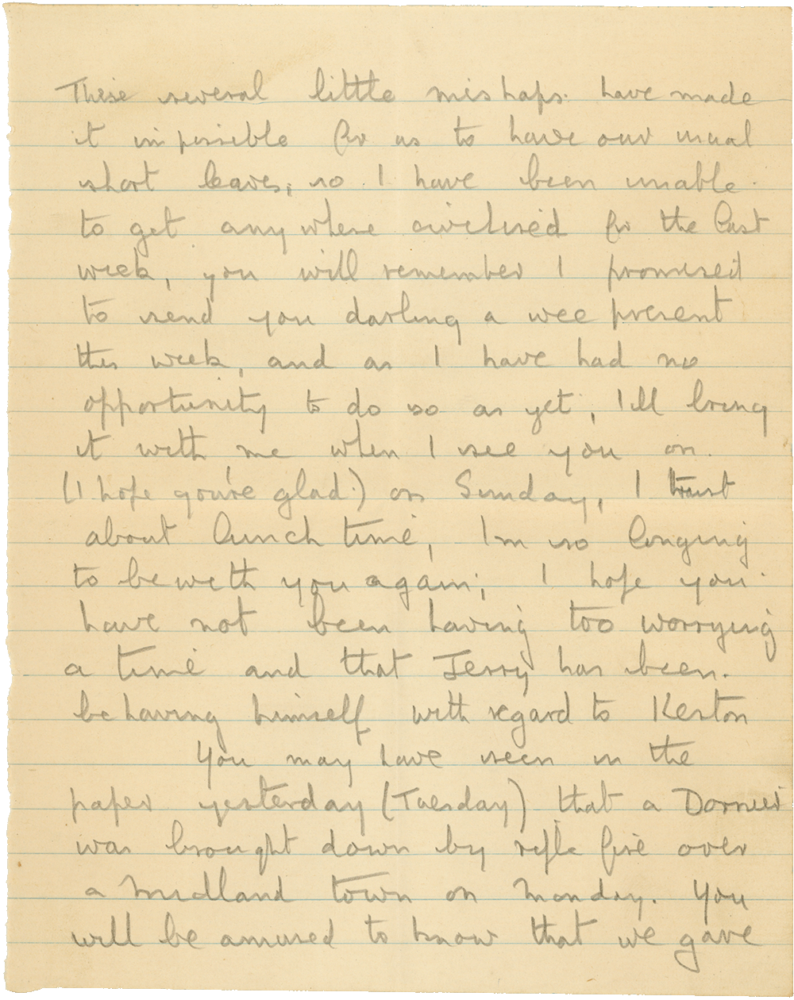 These several little mishaps have made
it impossible for us to have our usual
short leaves, so I have been unable
to get anywhere civilised for the last
week, you will remember I promised
to send you darling a wee present
this week, and as I have had no
opportunity to do so as yet, I'll bring
it with me when I see you on.
(I hope you're glad.) on Sunday, I trust
about lunch time, Im so longing
to be with you again; I hope you
have not been having too worrying
a time and that Jerry has been.
behaving himself with regard to Keston
You may have seen in the
paper yesterday (Tuesday) that a Dornier
was brought down by rifle fire over
a Midland town on Monday. You
will be amused to know that we gave